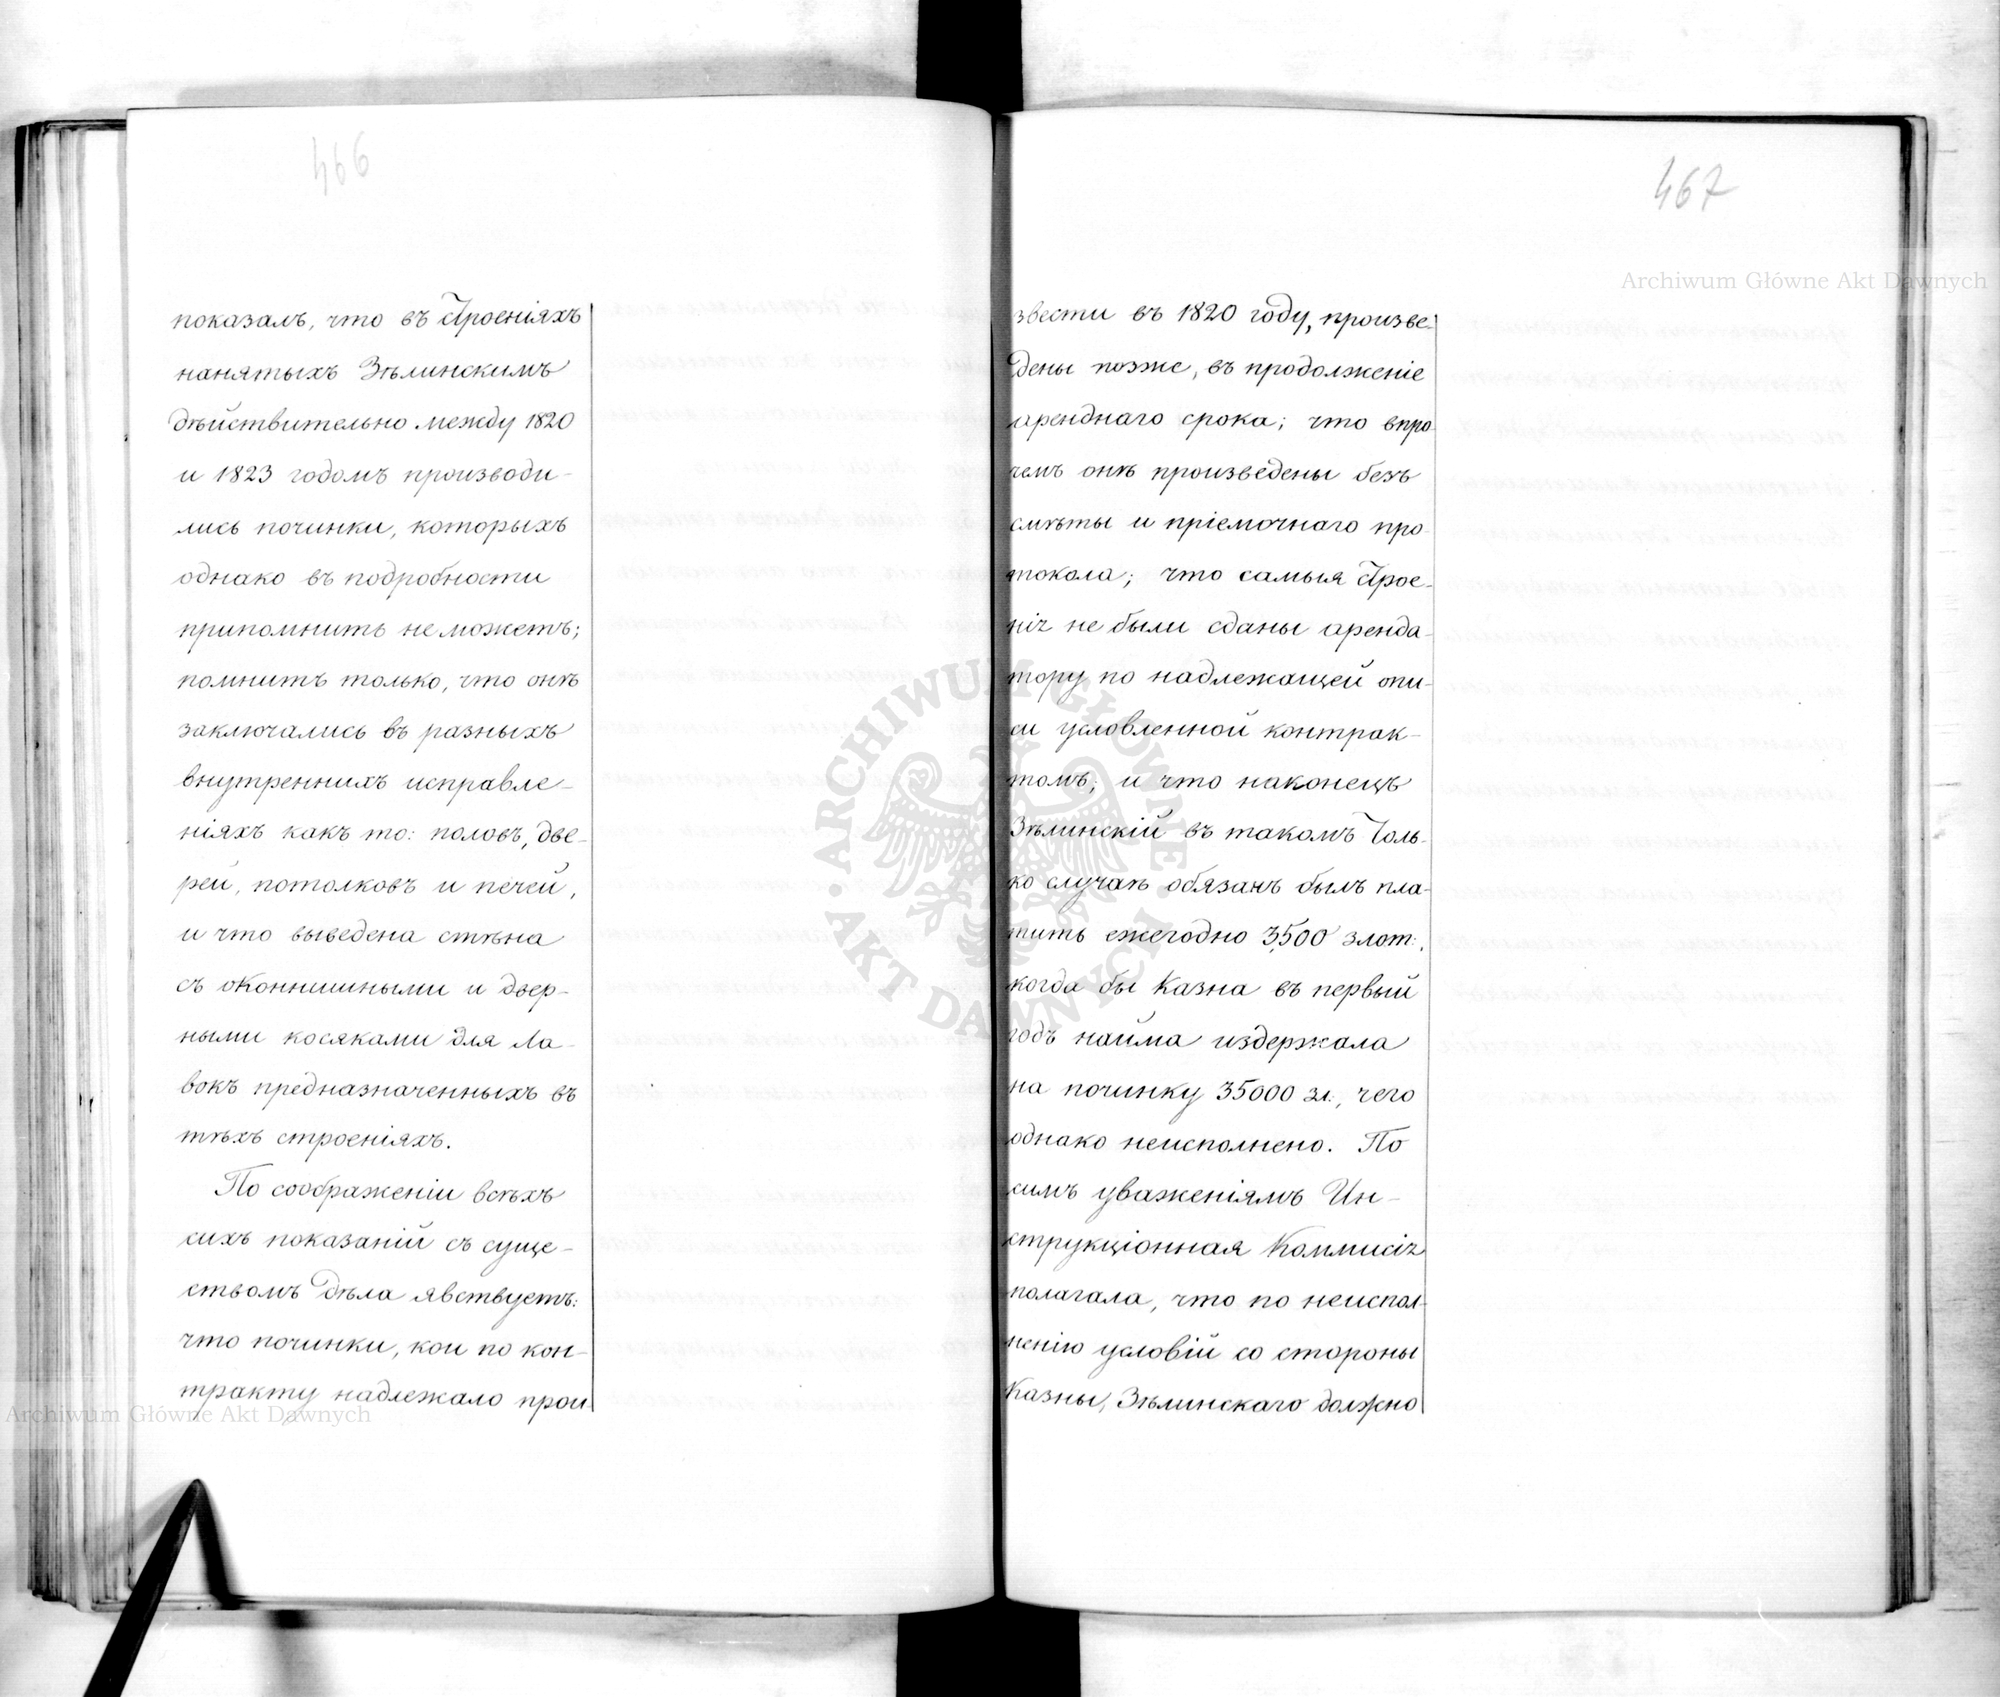 466
показалъ, что въ строеніяхъ
нанятыхъ Зѣлинскимъ
дѣйствительно между 1820
и 1823 годомъ производи-
лись починки, которыхъ
однако въ подробности
припомнить не можетъ;
помнитъ только, что онѣ
заключались въ разныхъ
внутреннихъ исправле-
ніяхъ какъ то: половъ, две-
рей, потолковъ и печей,
и что выведена стѣна
съ оконничными и двер-
ными косяками для ла-
вокъ предназначенныхъ въ
тѣхъ строеніяхъ.
По соображеніи всѣхъ
сихъ показаній съ суще-
ствомъ дѣла явствуетъ:
что починки, кои по кон-
тракту надлежало прои
467
звести въ 1820 году, произве-
дены позже, въ продолженіе
аренднаго срока; что впро-
чемъ онѣ произведены безъ
смѣты и пріемочнаго про-
токола; что самыя строе-
нія не были сданы аренда-
тору по надлежащей опи-
си условленной контрак-
томъ; и что наконецъ
Зѣлинскій въ такомъ толь-
ко случаѣ обязанъ былъ пла-
тить ежегодно 3,500 злот:,
когда бы Казна въ первый
годъ найма издержала
на починку 35000 зл:, чего
однако неисполнено. По
симъ уваженіямъ Ин-
струкціонная Коммисія
полагала, что по неиспол-
ненію условій со стороны
Казны, Зѣлинскаго должно
Archiwum Główne Akt Dawnych
Archiwum Główne Akt Dawnych
ARCHIWUM GŁÓWNE · AKT DAWNYCH ·